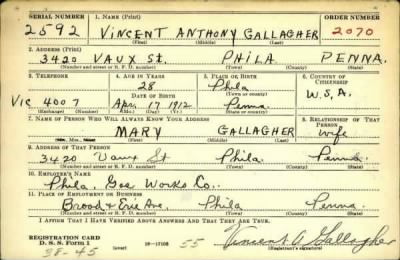 SERIAL NUMBER 1. NAME (Print) ORDER NUMBER
2592 VINCENT ANTHONY GALLAGHER 2070
(First) (Middle) (Last)
2. ADDRESS (Print)
3420 VAUX ST. PHILA PENNA.
(Number and street or R. F. D. number) (Town) (County) (State)
3. TELEPHONE 4. AGE IN YEARS 5. PLACE OF BIRTH 6. COUNTRY OF CITIZENSHIP
28 Phila
DATE OF BIRTH (Town or county)
Vic 4007 Apr. 17 1912 Penna. U.S.A.
(Exchange) (Number) (Mo.) (Day) (Yr.) (State or country)
7. NAME OF PERSON WHO WILL ALWAYS KNOW YOUR ADDRESS 8. RELATIONSHIP OF THAT PERSON
MARY GALLAGHER Wife
(Mr., Mrs., Miss) (First) (Middle) (Last)
9. ADDRESS OF THAT PERSON
3420 Vaux St Phila. Penna.
(Number and street or R. F. D. number) (Town) (County) (State)
10. EMPLOYER'S NAME
Phila. Gas Works Co.
11. PLACE OF EMPLOYMENT OR BUSINESS
Broad & Erie Ave. Phila Penna.
(Number and street or R. F. D. number) (Town) (County) (State)
I AFFIRM THAT I HAVE VERIFIED ABOVE ANSWERS AND THAT THEY ARE TRUE.
REGISTRATION CARD
D. S. S. Form 1 (over) 16-17105 55 Vincent A Gallagher
38-45 (Registrant's signature)